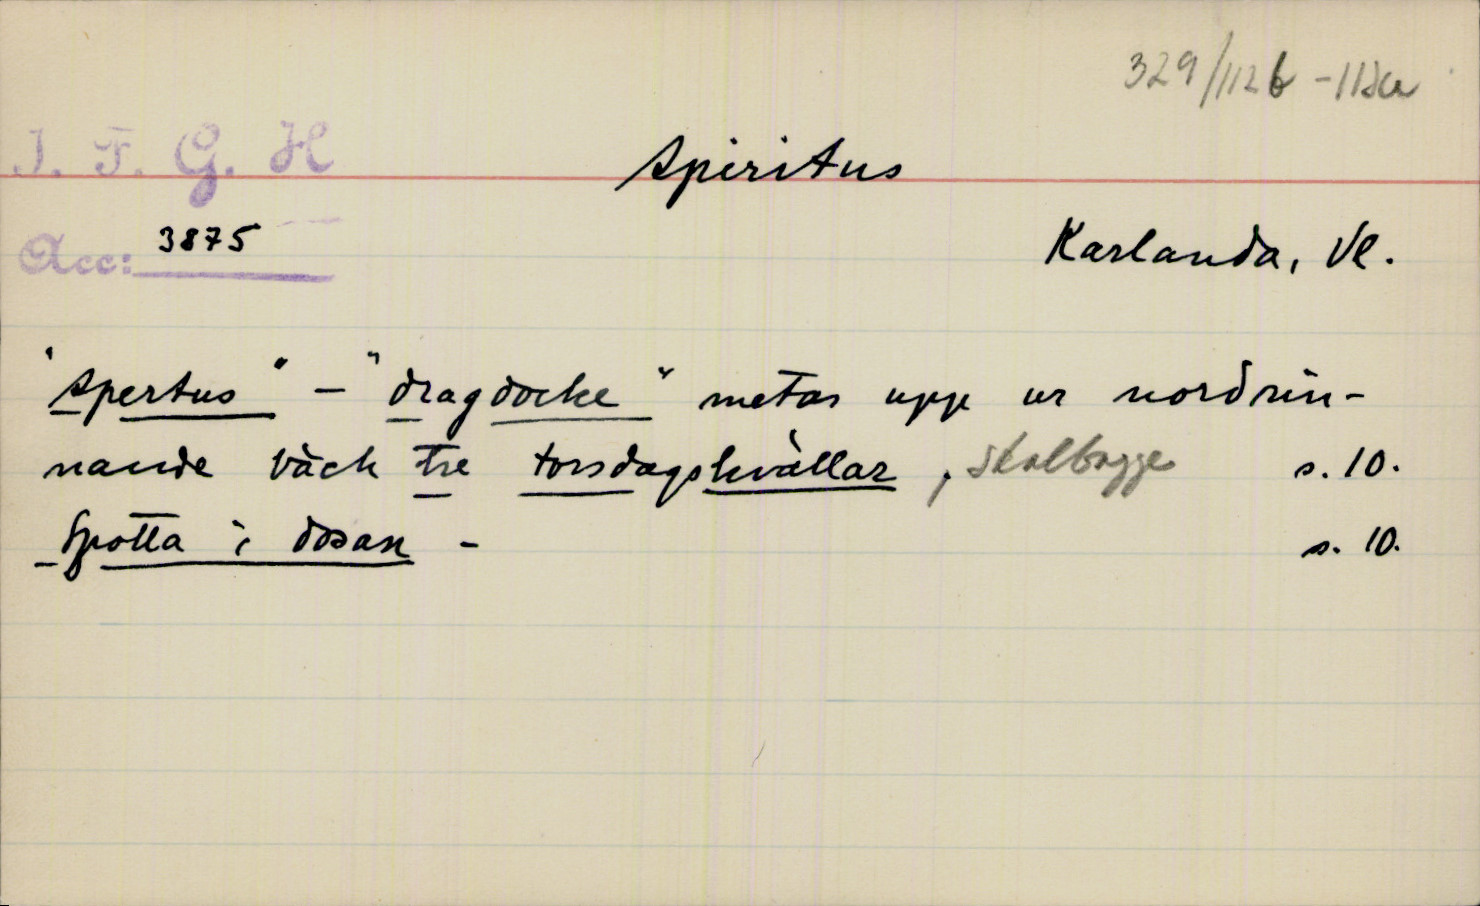 329/112b -113a
I. F. G. H
Spiritus
Acc: 3875
Karlanda, Vl.
"Spertus" – "dragdocke" metas upp ur nordrin-
nande bäck tre torsdagskvällar, skalbagge s. 10.
Spotta i dosan – s. 10.